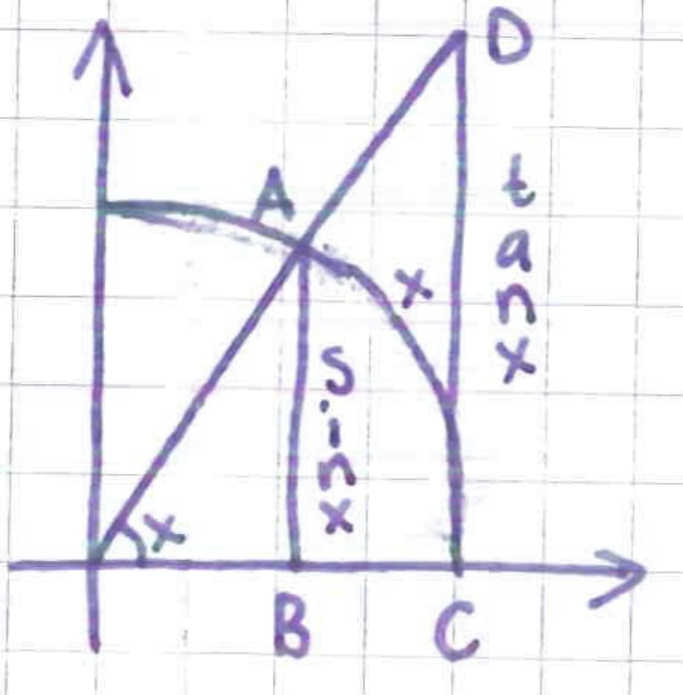 D
A
tanx
x
sinx
x
B
C